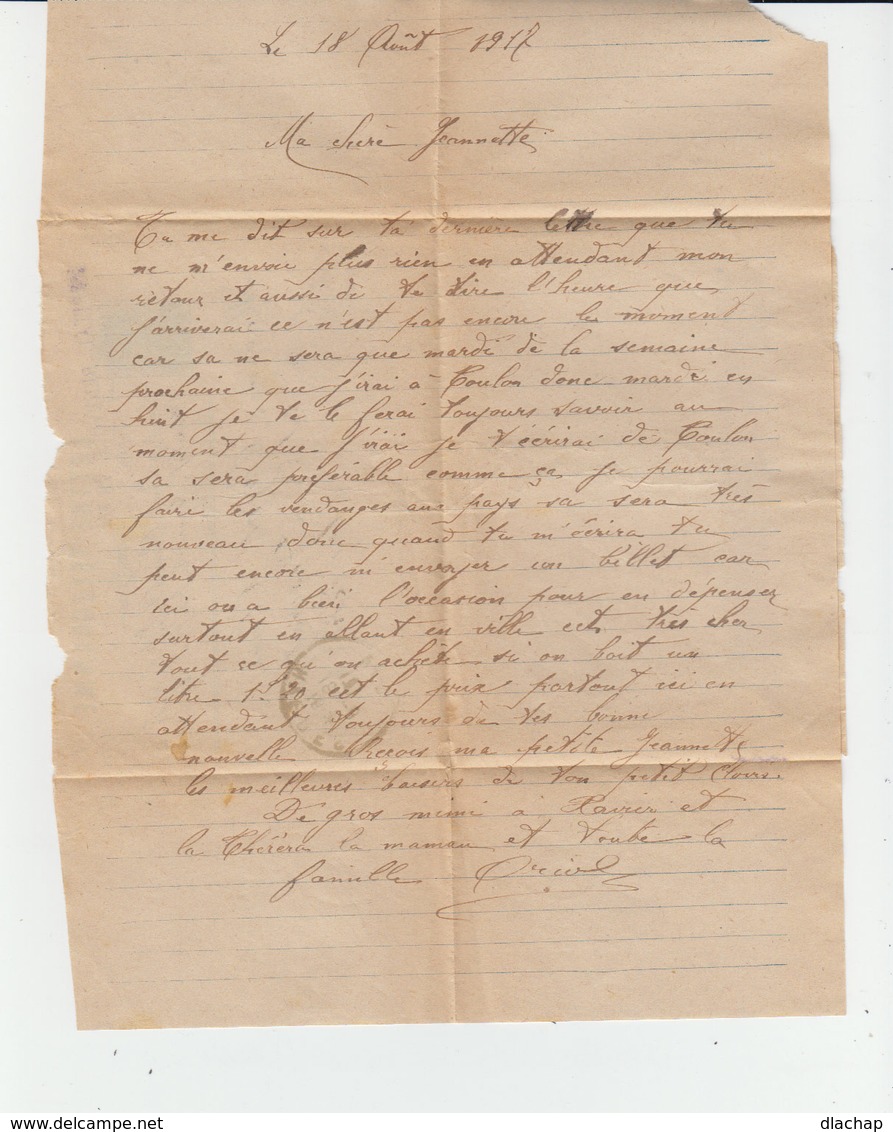 Le 18 Août 1917
Ma cherè Jeannette
Tu me dit sur ta dernière lettre que tu
ne m'envoie plus rien en attendant mon
retour et aussi de te dire l'heure que
j'arriverai ce n'est pas encore le moment
car sa ne sera que mardi de la semaine
prochaine que j'irai à Toulon donc mardi en
huit je te le ferai toujours savoir au
moment que j'irai je t'écrirai de Toulon
sa sera préférable comme ça je pourrai
faire les vendanges au pays sa sera très
nouveau donc quand tu m'écrira tu
peut encore m'envoyer un billet car
ici on a bien l'occasion pour en dépenser
surtout en allant en ville cet très cher
tout ce qu'on achète si on boit un
litre 1f 20 cet le prix partout ici en
attendant toujours de tes bonne
nouvelle Reçois ma petite Jeannette
les meilleures baisers de ton petit
De gros mimi à et
la la maman et toute la
famille
dlachap